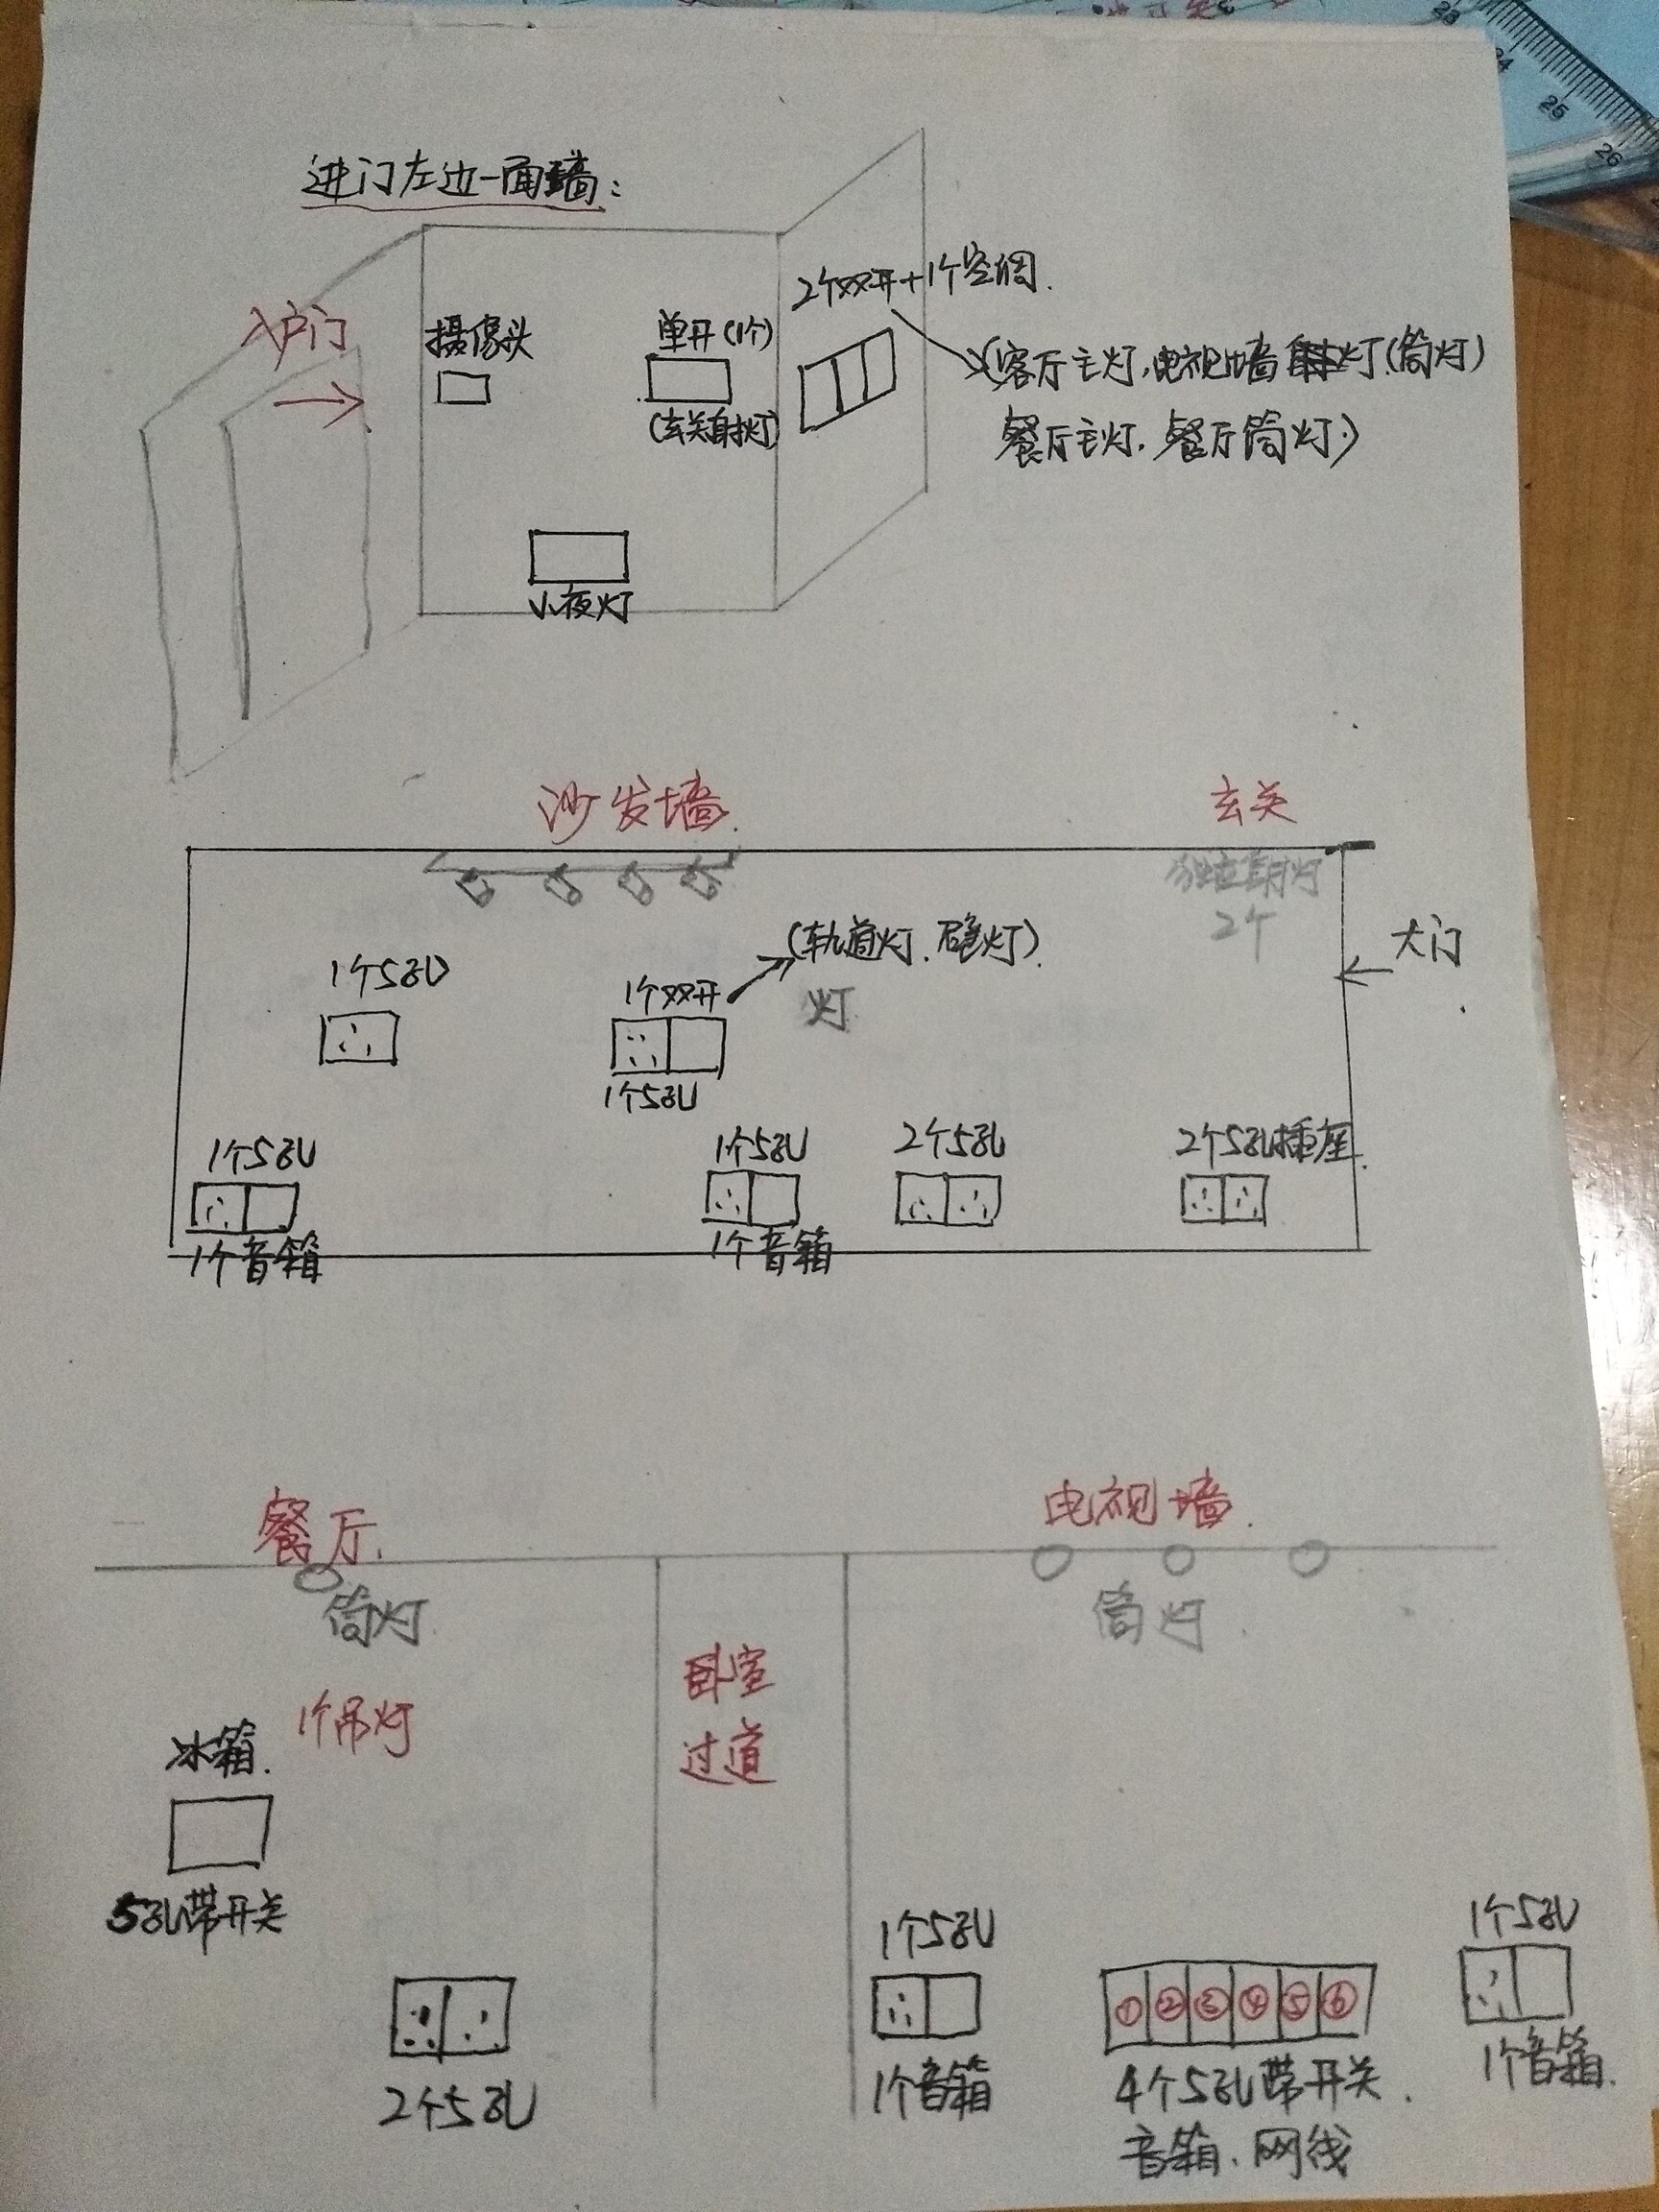 进门左边一面墙:
入户门
摄像头
单开(1个)
(玄关射灯)
2个双开+1个空调.
(客厅主灯,电视墙射灯(筒灯)
餐厅主灯,餐厅筒灯)
小夜灯
沙发墙.
玄关
独立射灯
2个
大门
(轨道灯.壁灯)
灯
1个5孔
1个双开
1个5孔
1个5孔
1个音箱
1个5孔
1个音箱
2个5孔
2个5孔插座.
餐厅.
筒灯
1个吊灯
冰箱.
5孔带开关
2个5孔
卧室
过道
电视墙.
筒灯.
1个5孔
1个音箱
① ② ③ ④ ⑤ ⑥
4个5孔带开关.
音箱、网线
1个5孔
1个音箱.
23
24
25
26